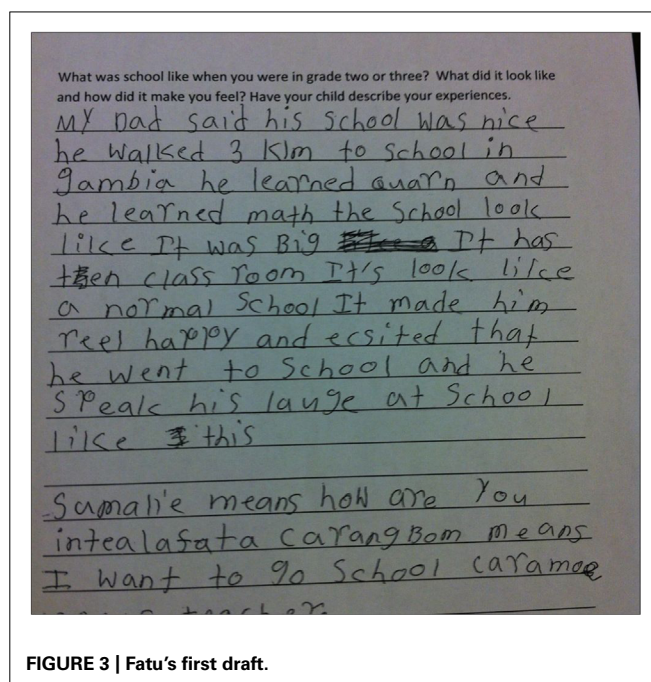 What was school like when you were in grade two or three? What did it look like
and how did it make you feel? Have your child describe your experiences.
My Dad said his school was nice
he walked 3 Klm to school in
gambia he learned quarn and
he learned math the School look
like It was Big It has
ten class room It's look like
a normal School It made him
feel happy and ecsited that
he went to School and he
speak his lauge at School
like this
Sumali'e means how are you
intealafata carangBom means
I want to go School caramoe
teacher.
FIGURE 3 | Fatu's first draft.